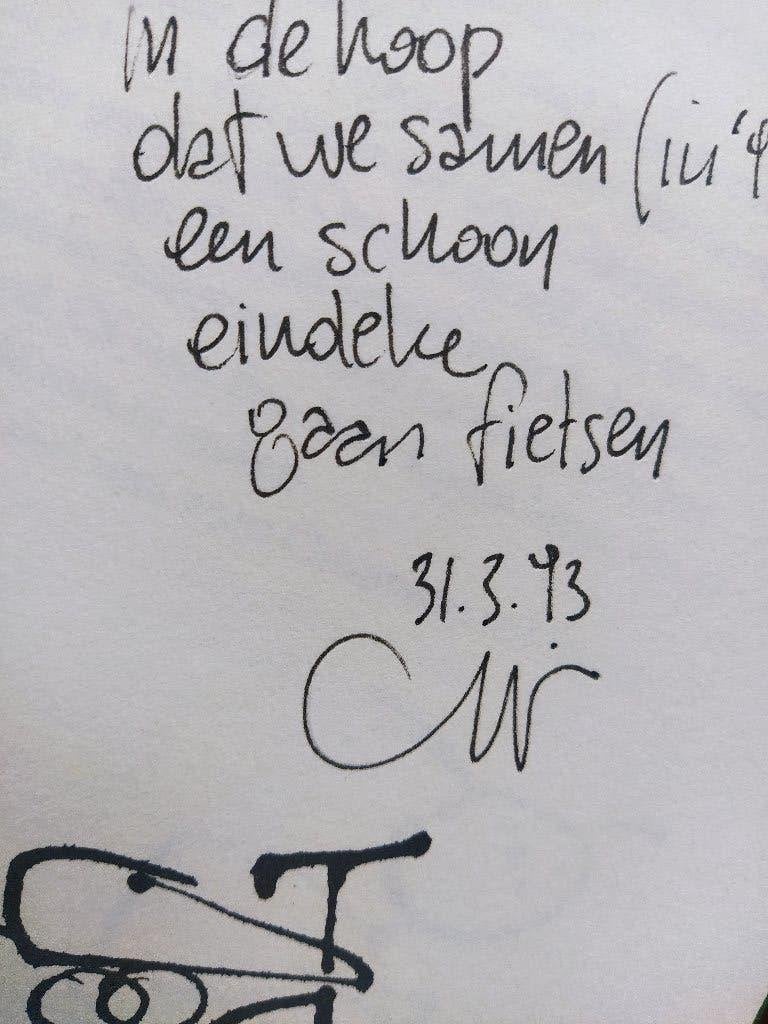 In de hoop
dat we samen (in '9
een schoon
eindeke
gaan fietsen
31.3.93